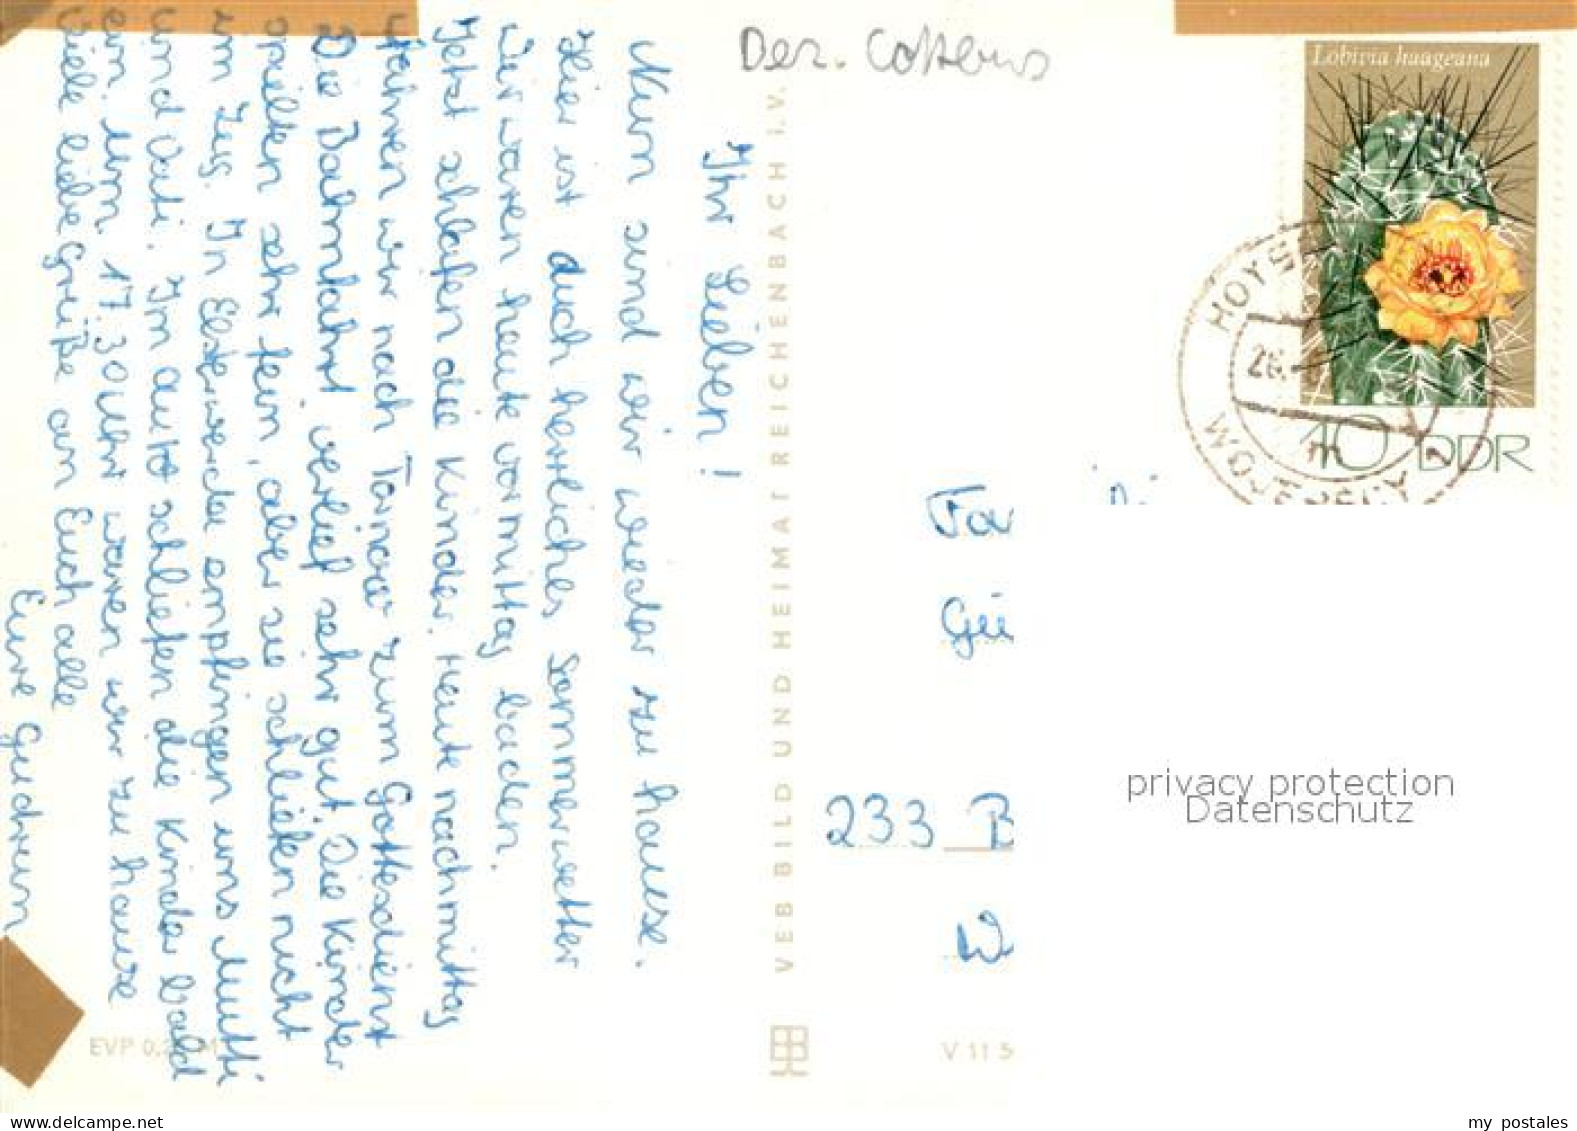 Bez. Cottbus
Ihr Lieben!
Nun sind wir wieder zu hause.
Hier ist auch herrliches Sommerwetter
Wir waren heute vormittag baden.
Jetzt schlafen die Kinder. Heute nachmittag
fahren wir nach Tornow zum Gottesdienst
Die Bahnfahrt verlief sehr gut. Die Kinder
spielten sehr fein, aber sie schliefen nicht
im Zug. In Elsterwerda empfingen uns Mutti
und Vati. Im auto schliefen die Kinder bald
ein. Um 17.30 Uhr waren wir zu hause
Viele liebe Grüße an Euch alle
Eure Gudrun
VEB BILD UND HEIMAT REICHENBACH I.V.
EVP 0,2 M
V 11 5
Lobivia haageana
10 DDR
HOYERSWERDA
26.
m
Fa
Gü
233 B
W
privacy protection
Datenschutz
my postales